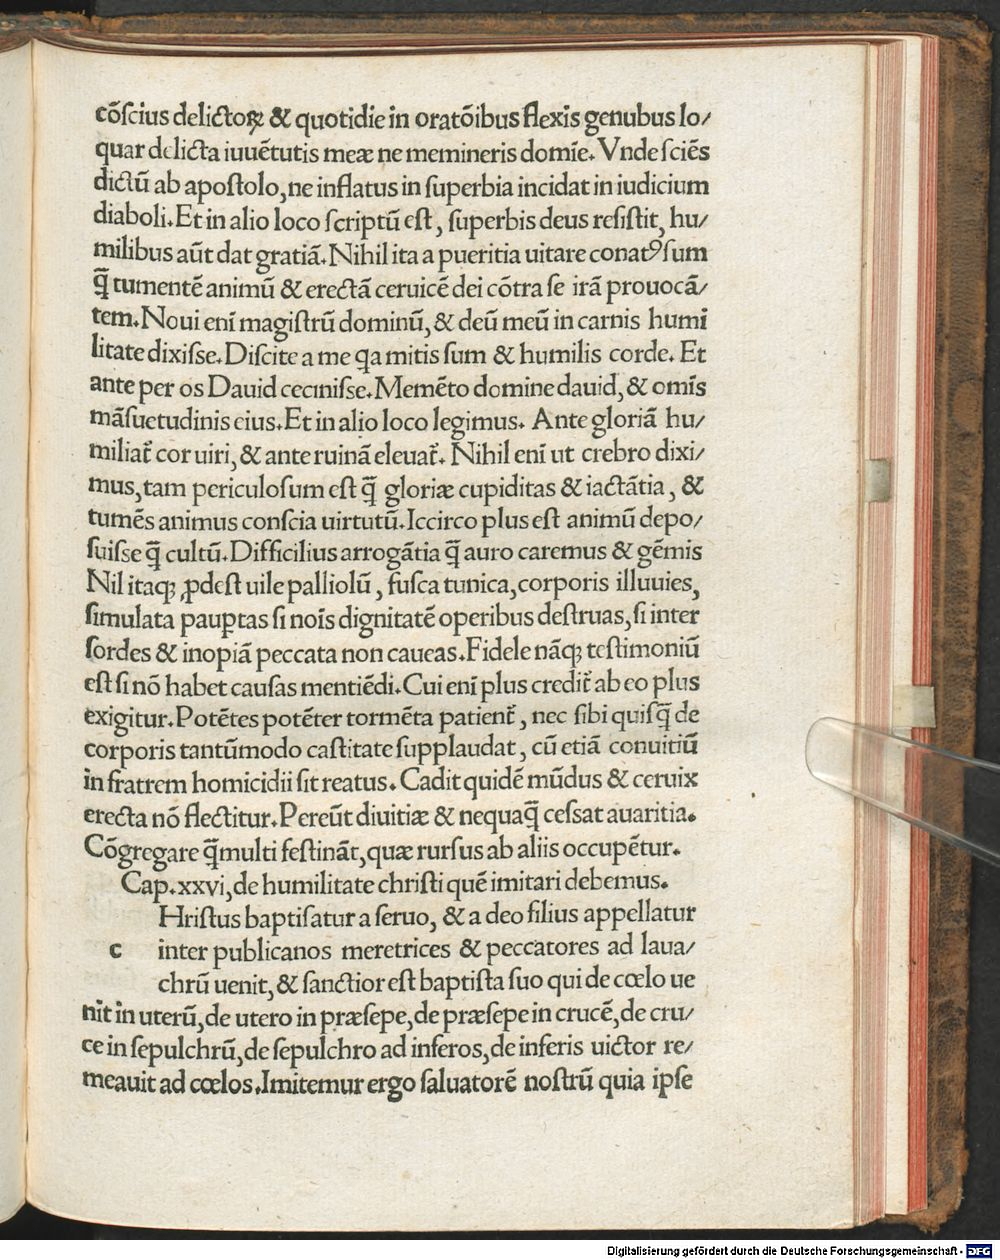 cõſcius delictoꝝ & quotidie in oratõibus flexis genubus lo/
quar delicta iuuẽtutis meæ ne memineris domĩe. Vnde ſciẽs
dictũ ab apoſtolo, ne inflatus in ſuperbia incidat in iudicium
diaboli. Et in alio loco ſcriptũ eſt, ſuperbis deus reſiſtit, hu/
milibus aũt dat gratiã. Nihil ita a pueritia uitare conatꝰ ſum
q̃ tumentẽ animũ & erectã ceruicẽ dei cõtra ſe irã prouocã/
tem. Noui enĩ magiſtrũ dominũ, & deũ meũ in carnis humi
litate dixiſſe. Diſcite a me qa mitis ſum & humilis corde. Et
ante per os Dauid ceciniſſe. Memẽto domine dauid, & omĩs
mãſuetudinis eius. Et in alio loco legimus. Ante gloriã hu/
miliat̃ cor uiri, & ante ruinã eleuat̃. Nihil enĩ ut crebro dixi/
mus, tam periculoſum eſt q̃ gloriæ cupiditas & iactãtia, &
tumẽs animus conſcia uirtutũ. Iccirco plus eſt animũ depo/
ſuiſſe q̃ cultũ. Difficilius arrogãtia q̃ auro caremus & gẽmis
Nil itaqꝫ ꝓdeſt uile palliolũ, fuſca tunica, corporis illuuies,
ſimulata pauꝑtas ſi noĩs dignitatẽ operibus deſtruas, ſi inter
ſordes & inopiã peccata non caueas. Fidele nãqꝫ teſtimoniũ
eſt ſi nõ habet cauſas mentiẽdi. Cui enĩ plus credit̃ ab eo plus
exigitur. Potẽtes potẽter tormẽta patient̃, nec ſibi quiſq̃ de
corporis tantũmodo caſtitate ſupplaudat, cũ etiã conuitiũ
in fratrem homicidii ſit reatus. Cadit quidẽ mũdus & ceruix
erecta nõ flectitur. Pereũt diuitiæ & nequaq̃ ceſſat auaritia.
Cõgregare q̃ multi feſtinãt, quæ rurſus ab aliis occupẽtur.
Cap. xxvi, de humilitate chriſti quẽ imitari debemus.
Hriſtus baptiſatur a ſeruo, & a deo filius appellatur
c inter publicanos meretrices & peccatores ad laua/
chrũ uenit, & ſanctior eſt baptiſta ſuo qui de cœlo ue
nit in uterũ, de utero in præſepe, de præſepe in crucẽ, de cru/
ce in ſepulchrũ, de ſepulchro ad inferos, de inferis uictor re/
meauit ad cœlos. Imitemur ergo ſaluatorẽ noſtrũ quia ipſe
Digitalisierung gefördert durch die Deutsche Forschungsgemeinschaft - DFG